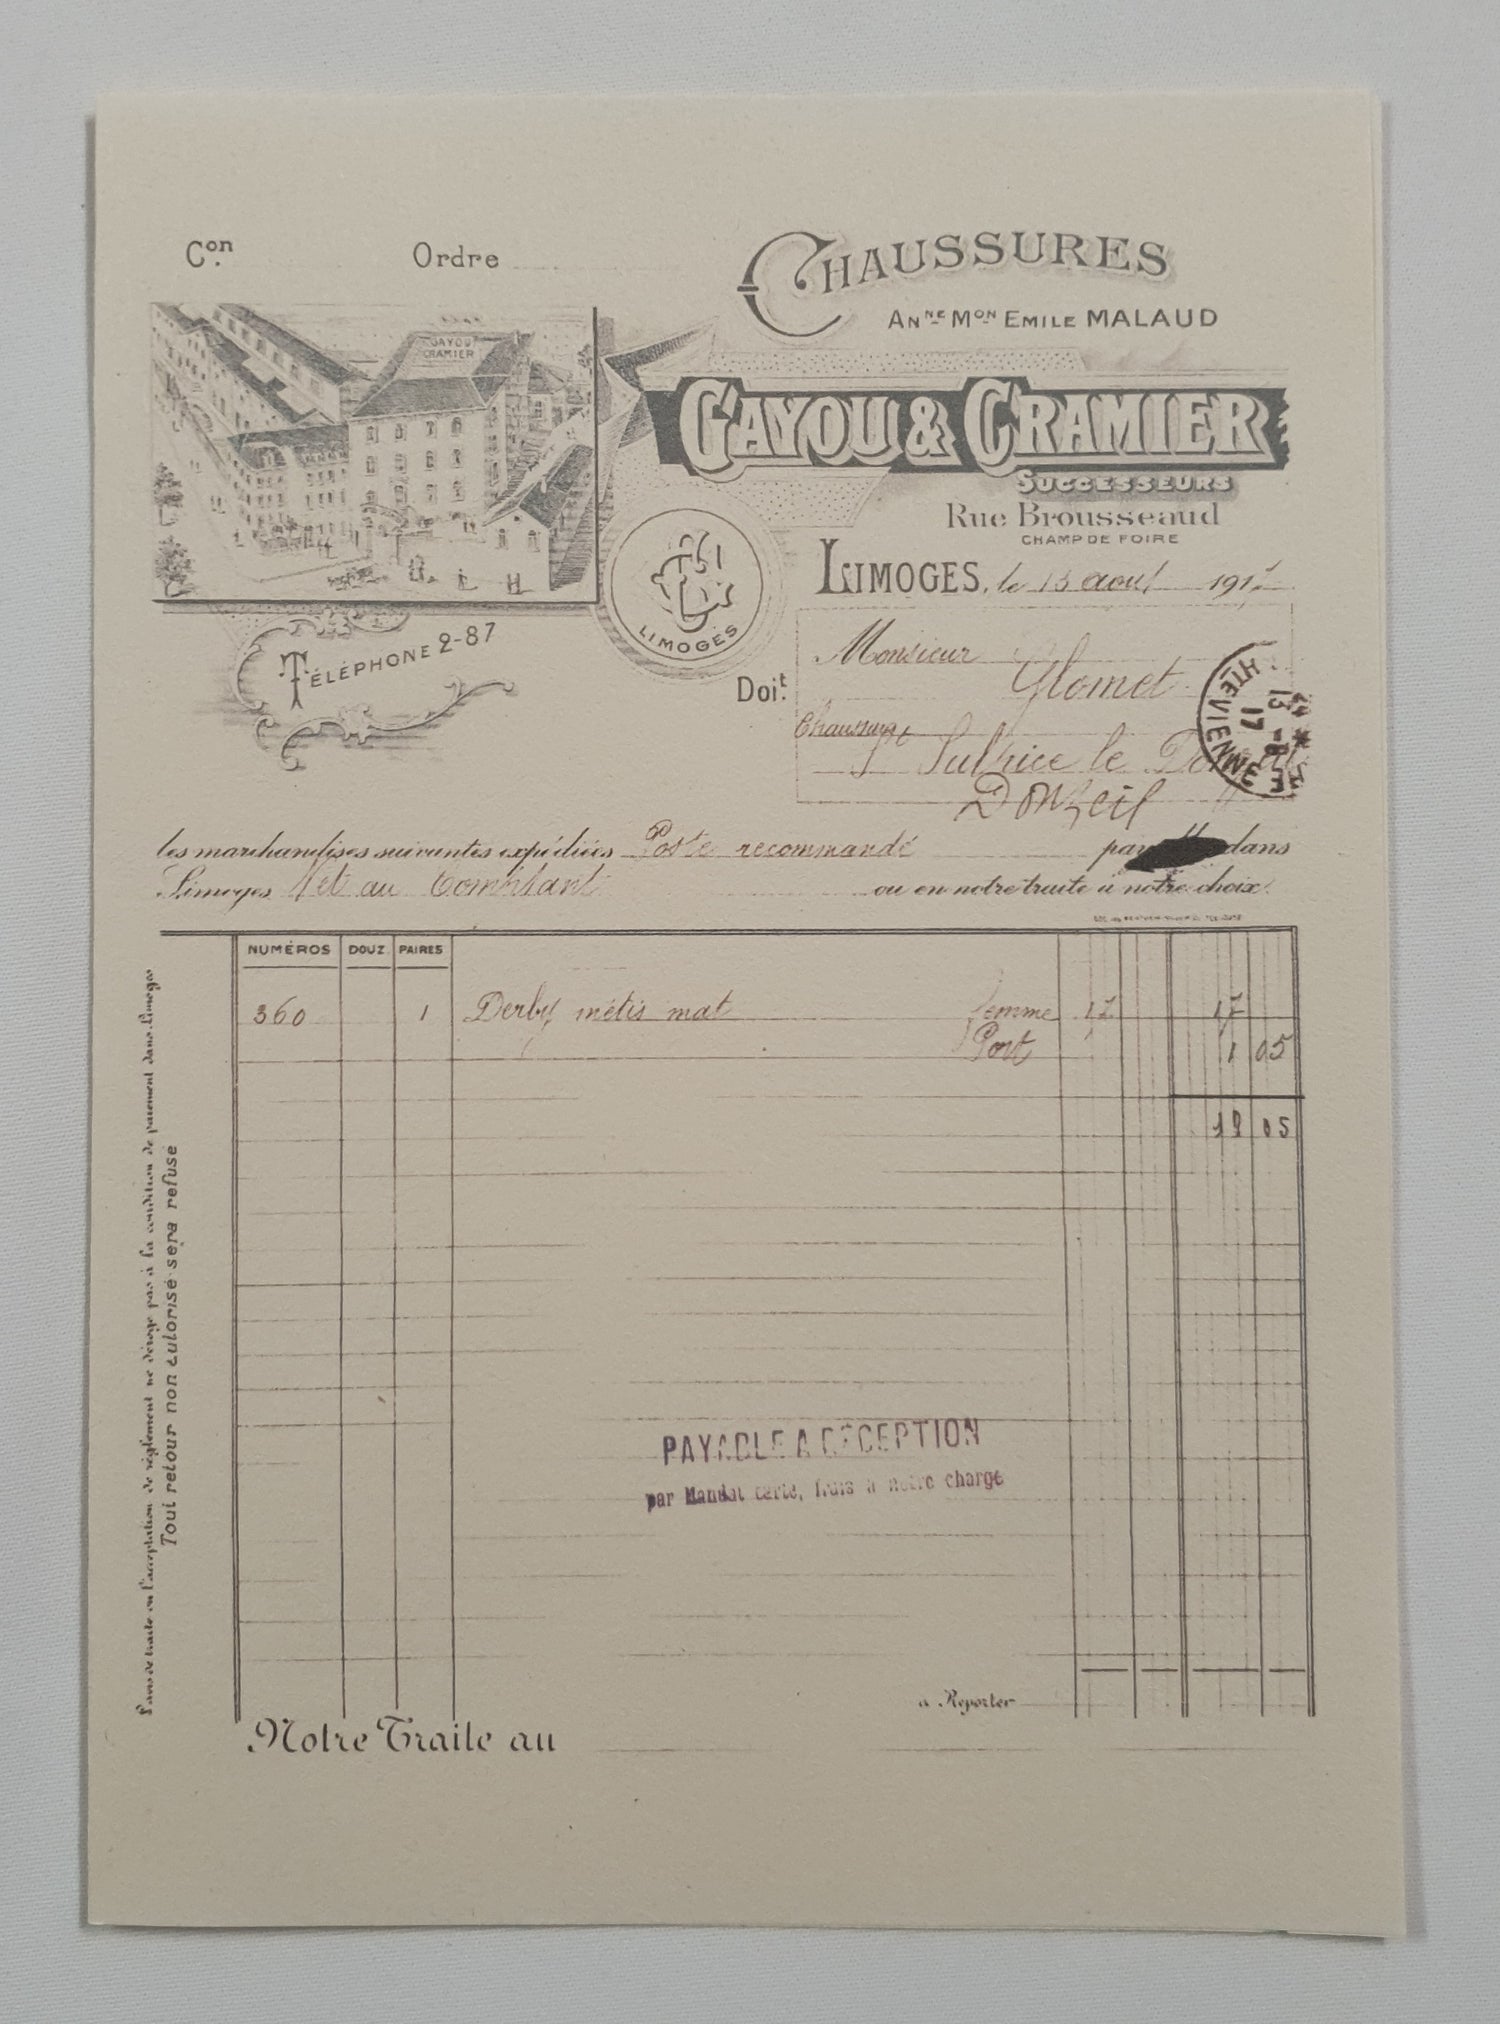 Con. Ordre
CHAUSSURES
ANNE MON EMILE MALAUD
GAYOU
CRAMIER
GAYOU & CRAMIER
SUCCESSEURS
Rue Brousseaud
CHAMP DE FOIRE
LIMOGES, le 13 août 1917
LIMOGES
TÉLÉPHONE 2-87
Monsieur Glomet
Doit.
Chaussures
St Sulpice le Donzeil
Donzeil
HTE VIENNE
13
17
les marchandises suivantes expédiées Poste recommandé par dans
Limoges Net au Comptant ou en notre traite à notre choix.
NUMÉROS DOUZ. PAIRES
360 1 Derby métis mat femme 17 17
Port 1 05
18 05
PAYABLE A RÉCEPTION
par Mandat carte, frais à notre charge
à Reporter
Notre Traite au
L'avis de traite ou l'acceptation de règlement ne déroge pas à la condition de paiement dans Limoges
Tout retour non autorisé sera refusé